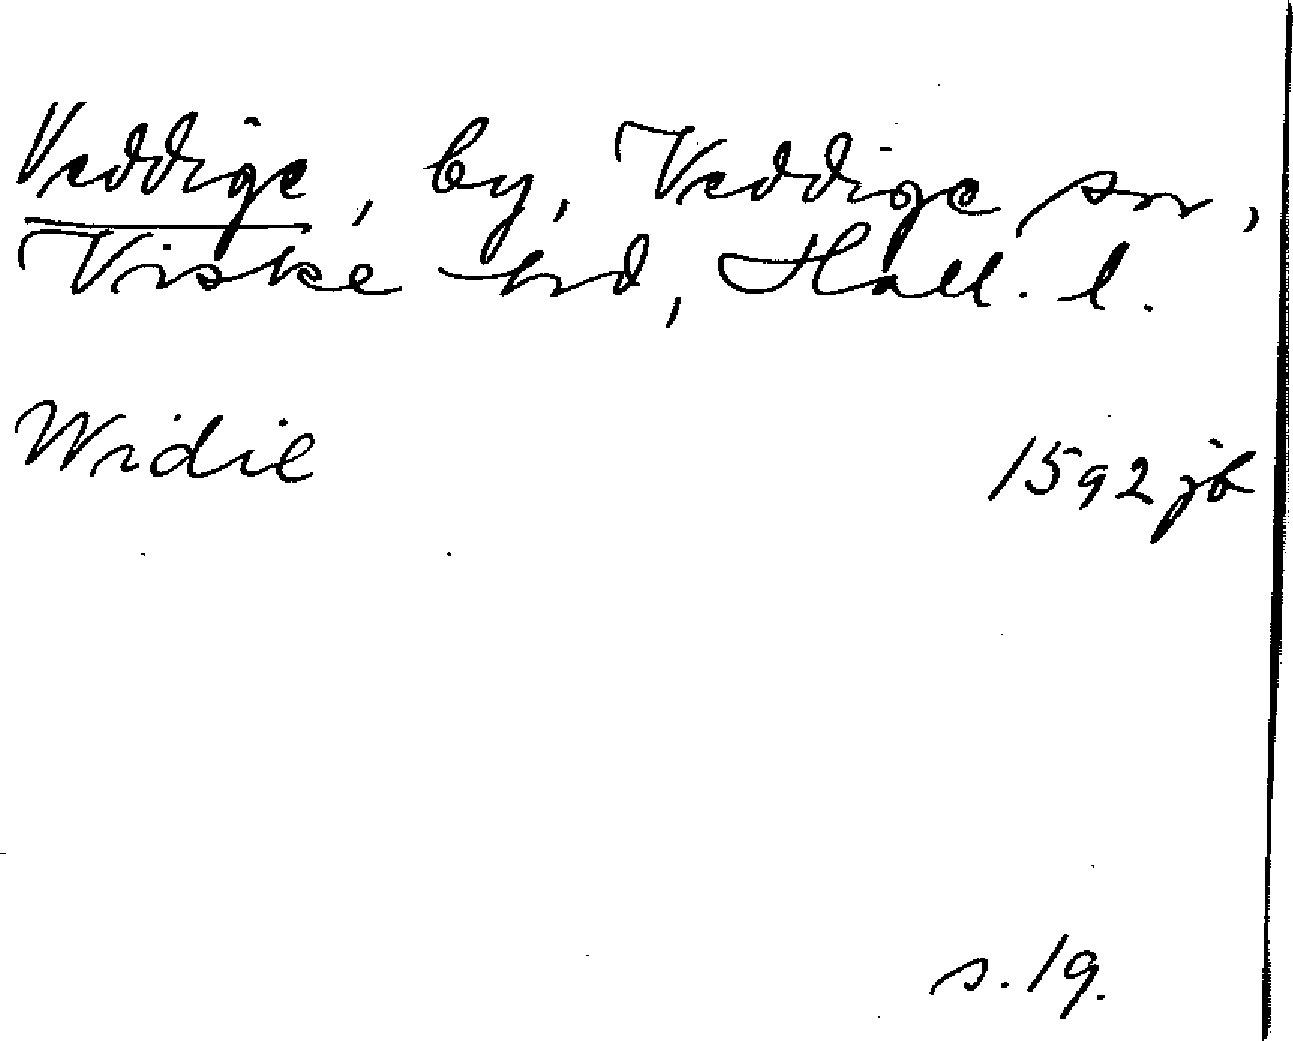 Veddige, by, Veddige sn,
Viske hd, Hall. l.
Widie 1592 jb
s. 19.